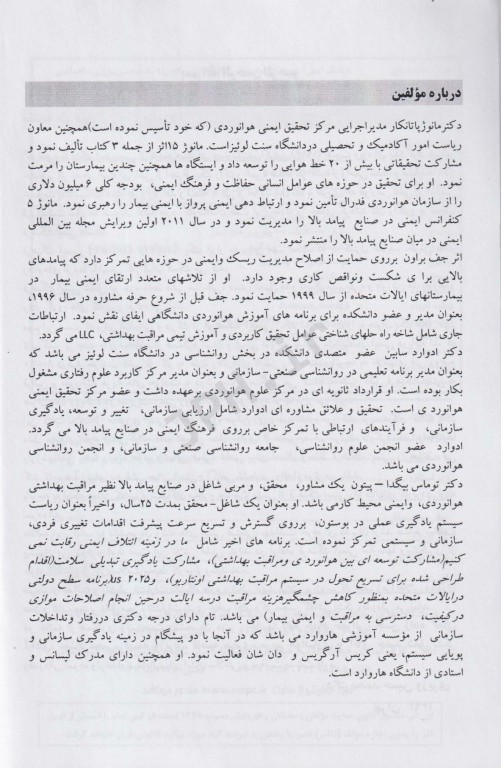 درباره مؤلفین
دکترمانوژپاتانکار مدیراجرایی مرکز تحقیق ایمنی هوانوردی (که خود تأسیس نموده است)همچنین معاون
ریاست امور آکادمیک و تحصیلی دردانشگاه سنت لوئیزاست. مانوژ ۱۵اثر از جمله ۳ کتاب تألیف نمود و
مشارکت تحقیقاتی با بیش از ۲۰ خط هوایی را توسعه داد و ایستگاه ها همچنین چندین بیمارستان را مرمت
نمود. او برای تحقیق در حوزه های عوامل انسانی حفاظت و فرهنگ ایمنی، بودجه کلی ۶ میلیون دلاری
را از سازمان هوانوردی فدرال تأمین نمود و ارتباط دهی ایمنی پرواز با ایمنی بیمار را رهبری نمود. مانوژ ۵
کنفرانس ایمنی در صنایع پیامد بالا را مدیریت نمود و در سال ۲۰۱۱ اولین ویرایش مجله بین المللی
ایمنی در میان صنایع پیامد بالا را منتشر نمود.
اثر جف براون برروی حمایت از اصلاح مدیریت ریسک وایمنی در حوزه هایی تمرکز دارد که پیامدهای
بالایی برا ی شکست ونواقص کاری وجود دارد. او از تلاشهای متعدد ارتقای ایمنی بیمار در
بیمارستانهای ایالات متحده از سال ۱۹۹۹ حمایت نمود. جف قبل از شروع حرفه مشاوره در سال ۱۹۹۶،
بعنوان مدیر و عضو دانشکده برای برنامه های آموزش هوانوردی دانشگاهی ایفای نقش نمود. ارتباطات
جاری شامل شاخه راه حلهای شناختی عوامل تحقیق کاربردی و آموزش تیمی مراقبت بهداشتی، LLC می گردد.
دکتر ادوارد سابین عضو متصدی دانشکده در بخش روانشناسی در دانشگاه سنت لوئیز می باشد که
بعنوان مدیر برنامه تعلیمی در روانشناسی صنعتی-سازمانی و بعنوان مدیر مرکز کاربرد علوم رفتاری مشغول
بکار بوده است. او قرارداد ثانویه ای در مرکز علوم هوانوردی برعهده داشت و عضو مرکز تحقیق ایمنی
هوانورد ی است. تحقیق و علائق مشاوره ای ادوارد شامل ارزیابی سازمانی، تغییر و توسعه، یادگیری
سازمانی، و فرآیندهای ارتباطی با تمرکز خاص برروی فرهنگ ایمنی در صنایع پیامد بالا می گردد.
ادوارد عضو انجمن علوم روانشناسی، جامعه روانشناسی صنعتی و سازمانی، و انجمن روانشناسی
هوانوردی می باشد.
دکتر توماس بیگدا – پیتون یک مشاور، محقق، و مربی شاغل در صنایع پیامد بالا نظیر مراقبت بهداشتی
هوانوردی، وایمنی محیط کارمی باشد. او بعنوان یک شاغل-محقق بمدت ۲۵سال، واخیراً بعنوان ریاست
سیستم یادگیری عملی در بوستون، برروی گسترش و تسریع سرعت پیشرفت اقدامات تغییری فردی،
سازمانی و سیستمی تمرکز نموده است. برنامه های اخیر شامل ما در زمینه ائتلاف ایمنی رقابت نمی
کنیم(مشارکت توسعه ای بین هوانورد ی ومراقبت بهداشتی)، مشارکت یادگیری تبدیلی سلامت(اقدام
طراحی شده برای تسریع تحول در سیستم مراقبت بهداشتی اونتاریو)، و us ۲۰۲۵(برنامه سطح دولتی
درایالات متحده بمنظور کاهش چشمگیرهزینه مراقبت درسه ایالت درحین انجام اصلاحات موازی
درکیفیت، دسترسی به مراقبت و ایمنی بیمار) می باشد. تام دارای درجه دکتری دررفتار وتداخلات
سازمانی از مؤسسه آموزشی هاروارد می باشد که در آنجا با دو پیشگام در زمینه یادگیری سازمانی و
پویایی سیستم، یعنی کریس آرگریس و دان شان فعالیت نمود. او همچنین دارای مدرک لیسانس و
استادی از دانشگاه هاروارد است.